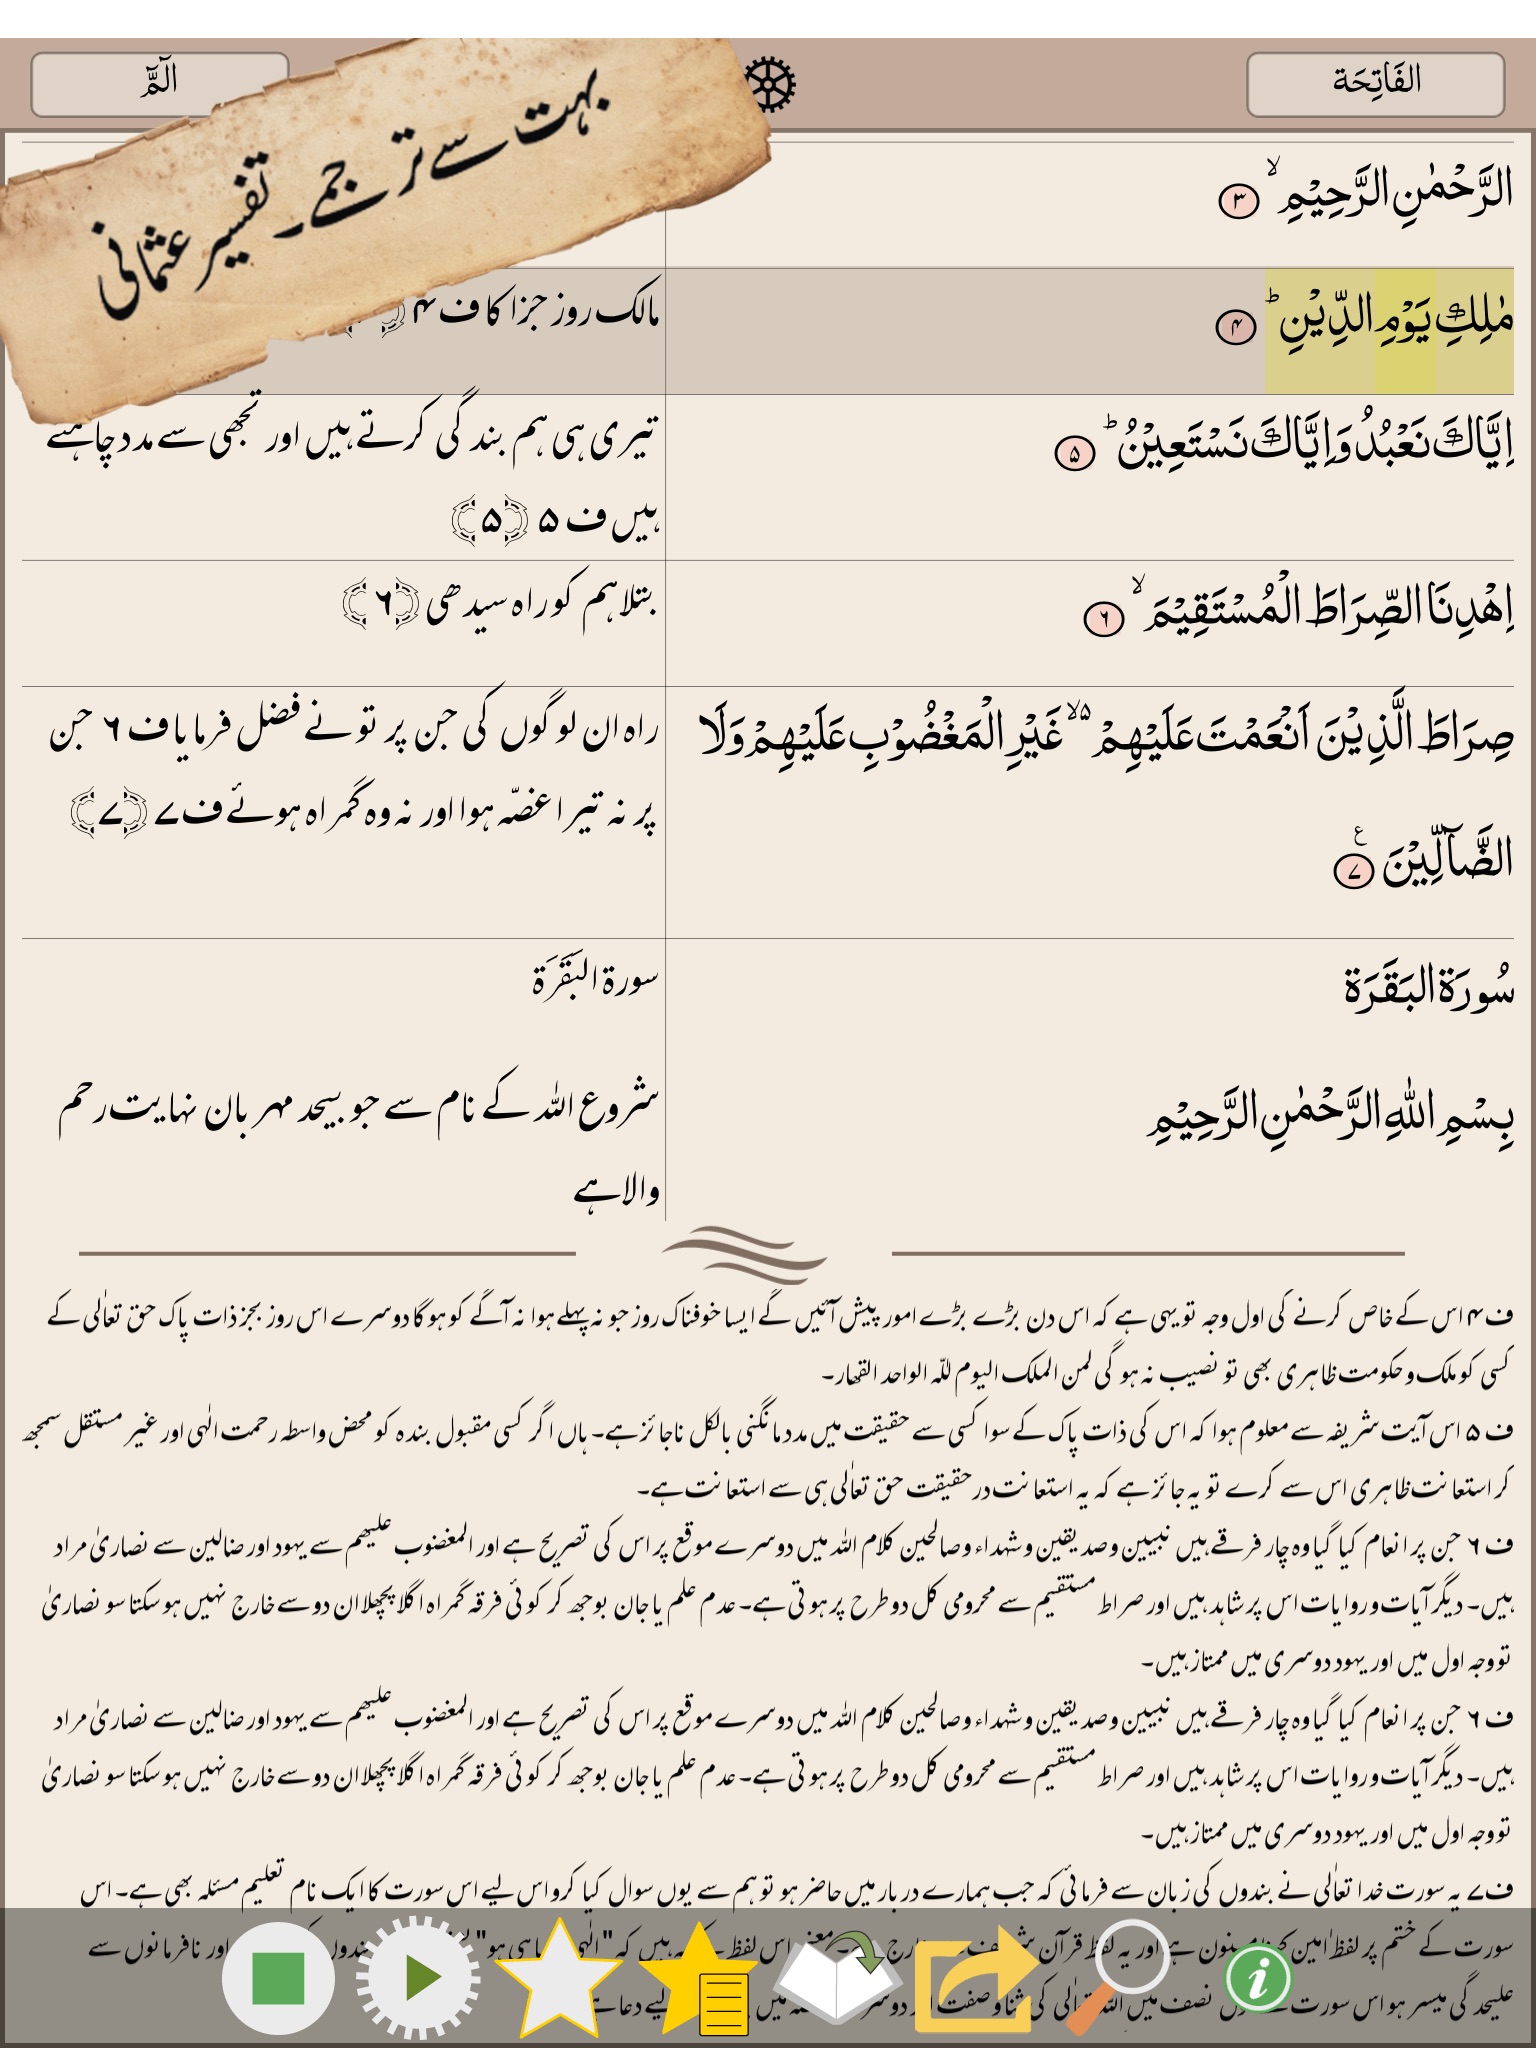 الفَاتِحَة
الٓمّٓ
بہت سے ترجمے۔ تفسیر عثمانی
الرَّحْمٰنِ الرَّحِیْمِ ۙ ۳
مٰلِكِ یَوْمِ الدِّیْنِ ؕ ۴
مالک روز جزا کا ف ۴
اِیَّاكَ نَعْبُدُ وَاِیَّاكَ نَسْتَعِیْنُ ؕ ۵
تیری ہی ہم بندگی کرتے ہیں اور تجھی سے مدد چاہتے
ہیں ف ۵ ﴿۵﴾
اِهْدِنَا الصِّرَاطَ الْمُسْتَقِیْمَ ۙ ۶
بتلا ہم کو راہ سیدھی ﴿۶﴾
صِرَاطَ الَّذِیْنَ اَنْعَمْتَ عَلَیْهِمْ ۙ۬ۥ غَیْرِ الْمَغْضُوْبِ عَلَیْهِمْ وَلَا
الضَّآلِّیْنَ ۷ ع
راہ ان لوگوں کی جن پر تو نے فضل فرمایا ف ۶ جن
پر نہ تیرا غصّہ ہوا اور نہ وہ گمراہ ہوئے ف ۷ ﴿۷﴾
سُورَة البَقَرَة
سورة البَقَرَة
بِسْمِ اللّٰهِ الرَّحْمٰنِ الرَّحِیْمِ
شروع اللہ کے نام سے جو بیحد مہربان نہایت رحم
والا ہے
ف ۴ اس کے خاص کرنے کی اول وجہ تو یہی ہے کہ اس دن بڑے بڑے امور پیش آئیں گے ایسا خوفناک روز جو نہ پہلے ہوا نہ آگے کو ہو گا دوسرے اس روز بجز ذات پاک حق تعالٰی کے
کسی کو ملک و حکومت ظاہری بھی تو نصیب نہ ہو گی لمن الملک الیوم للّٰہ الواحد القھار۔
ف ۵ اس آیت شریفہ سے معلوم ہوا کہ اس کی ذات پاک کے سوا کسی سے حقیقت میں مدد مانگنی بالکل ناجائز ہے۔ ہاں اگر کسی مقبول بندہ کو محض واسطہ رحمت الٰہی اور غیر مستقل سمجھ
کر استعانت ظاہری اس سے کرے تو یہ جائز ہے کہ یہ استعانت درحقیقت حق تعالٰی ہی سے استعانت ہے۔
ف ۶ جن پر انعام کیا گیا وہ چار فرقے ہیں نبیین و صدیقین و شہداء و صالحین کلام اللہ میں دوسرے موقع پر اس کی تصریح ہے اور المغضوب علیھم سے یہود اور ضالین سے نصاریٰ مراد
ہیں۔ دیگر آیات و روایات اس پر شاہد ہیں اور صراط مستقیم سے محرومی کل دو طرح پر ہوتی ہے۔ عدم علم یا جان بوجھ کر کوئی فرقہ گمراہ اگلا پچھلا ان دو سے خارج نہیں ہو سکتا سو نصاریٰ
تو وجہ اول میں اور یہود دوسری میں ممتاز ہیں۔
ف ۶ جن پر انعام کیا گیا وہ چار فرقے ہیں نبیین و صدیقین و شہداء و صالحین کلام اللہ میں دوسرے موقع پر اس کی تصریح ہے اور المغضوب علیھم سے یہود اور ضالین سے نصاریٰ مراد
ہیں۔ دیگر آیات و روایات اس پر شاہد ہیں اور صراط مستقیم سے محرومی کل دو طرح پر ہوتی ہے۔ عدم علم یا جان بوجھ کر کوئی فرقہ گمراہ اگلا پچھلا ان دو سے خارج نہیں ہو سکتا سو نصاریٰ
تو وجہ اول میں اور یہود دوسری میں ممتاز ہیں۔
ف ۷ یہ سورت خدا تعالٰی نے بندوں کی زبان سے فرمائی کہ جب ہمارے دربار میں حاضر ہو تو ہم سے یوں سوال کیا کرو اس لیے اس سورت کا ایک نام تعلیم مسئلہ بھی ہے۔ اس
سورت کے ختم پر لفظ اٰمین کہنا مسنون ہے اور یہ لفظ قرآن اس لفظ ہیں کہ "الٰہی ہو" اور نافرمانوں سے
علیحدگی میسر ہو اس سورت نصف میں اللہ تعالٰی کی ثنا و صفت اور دوسرے میں لیے دعا